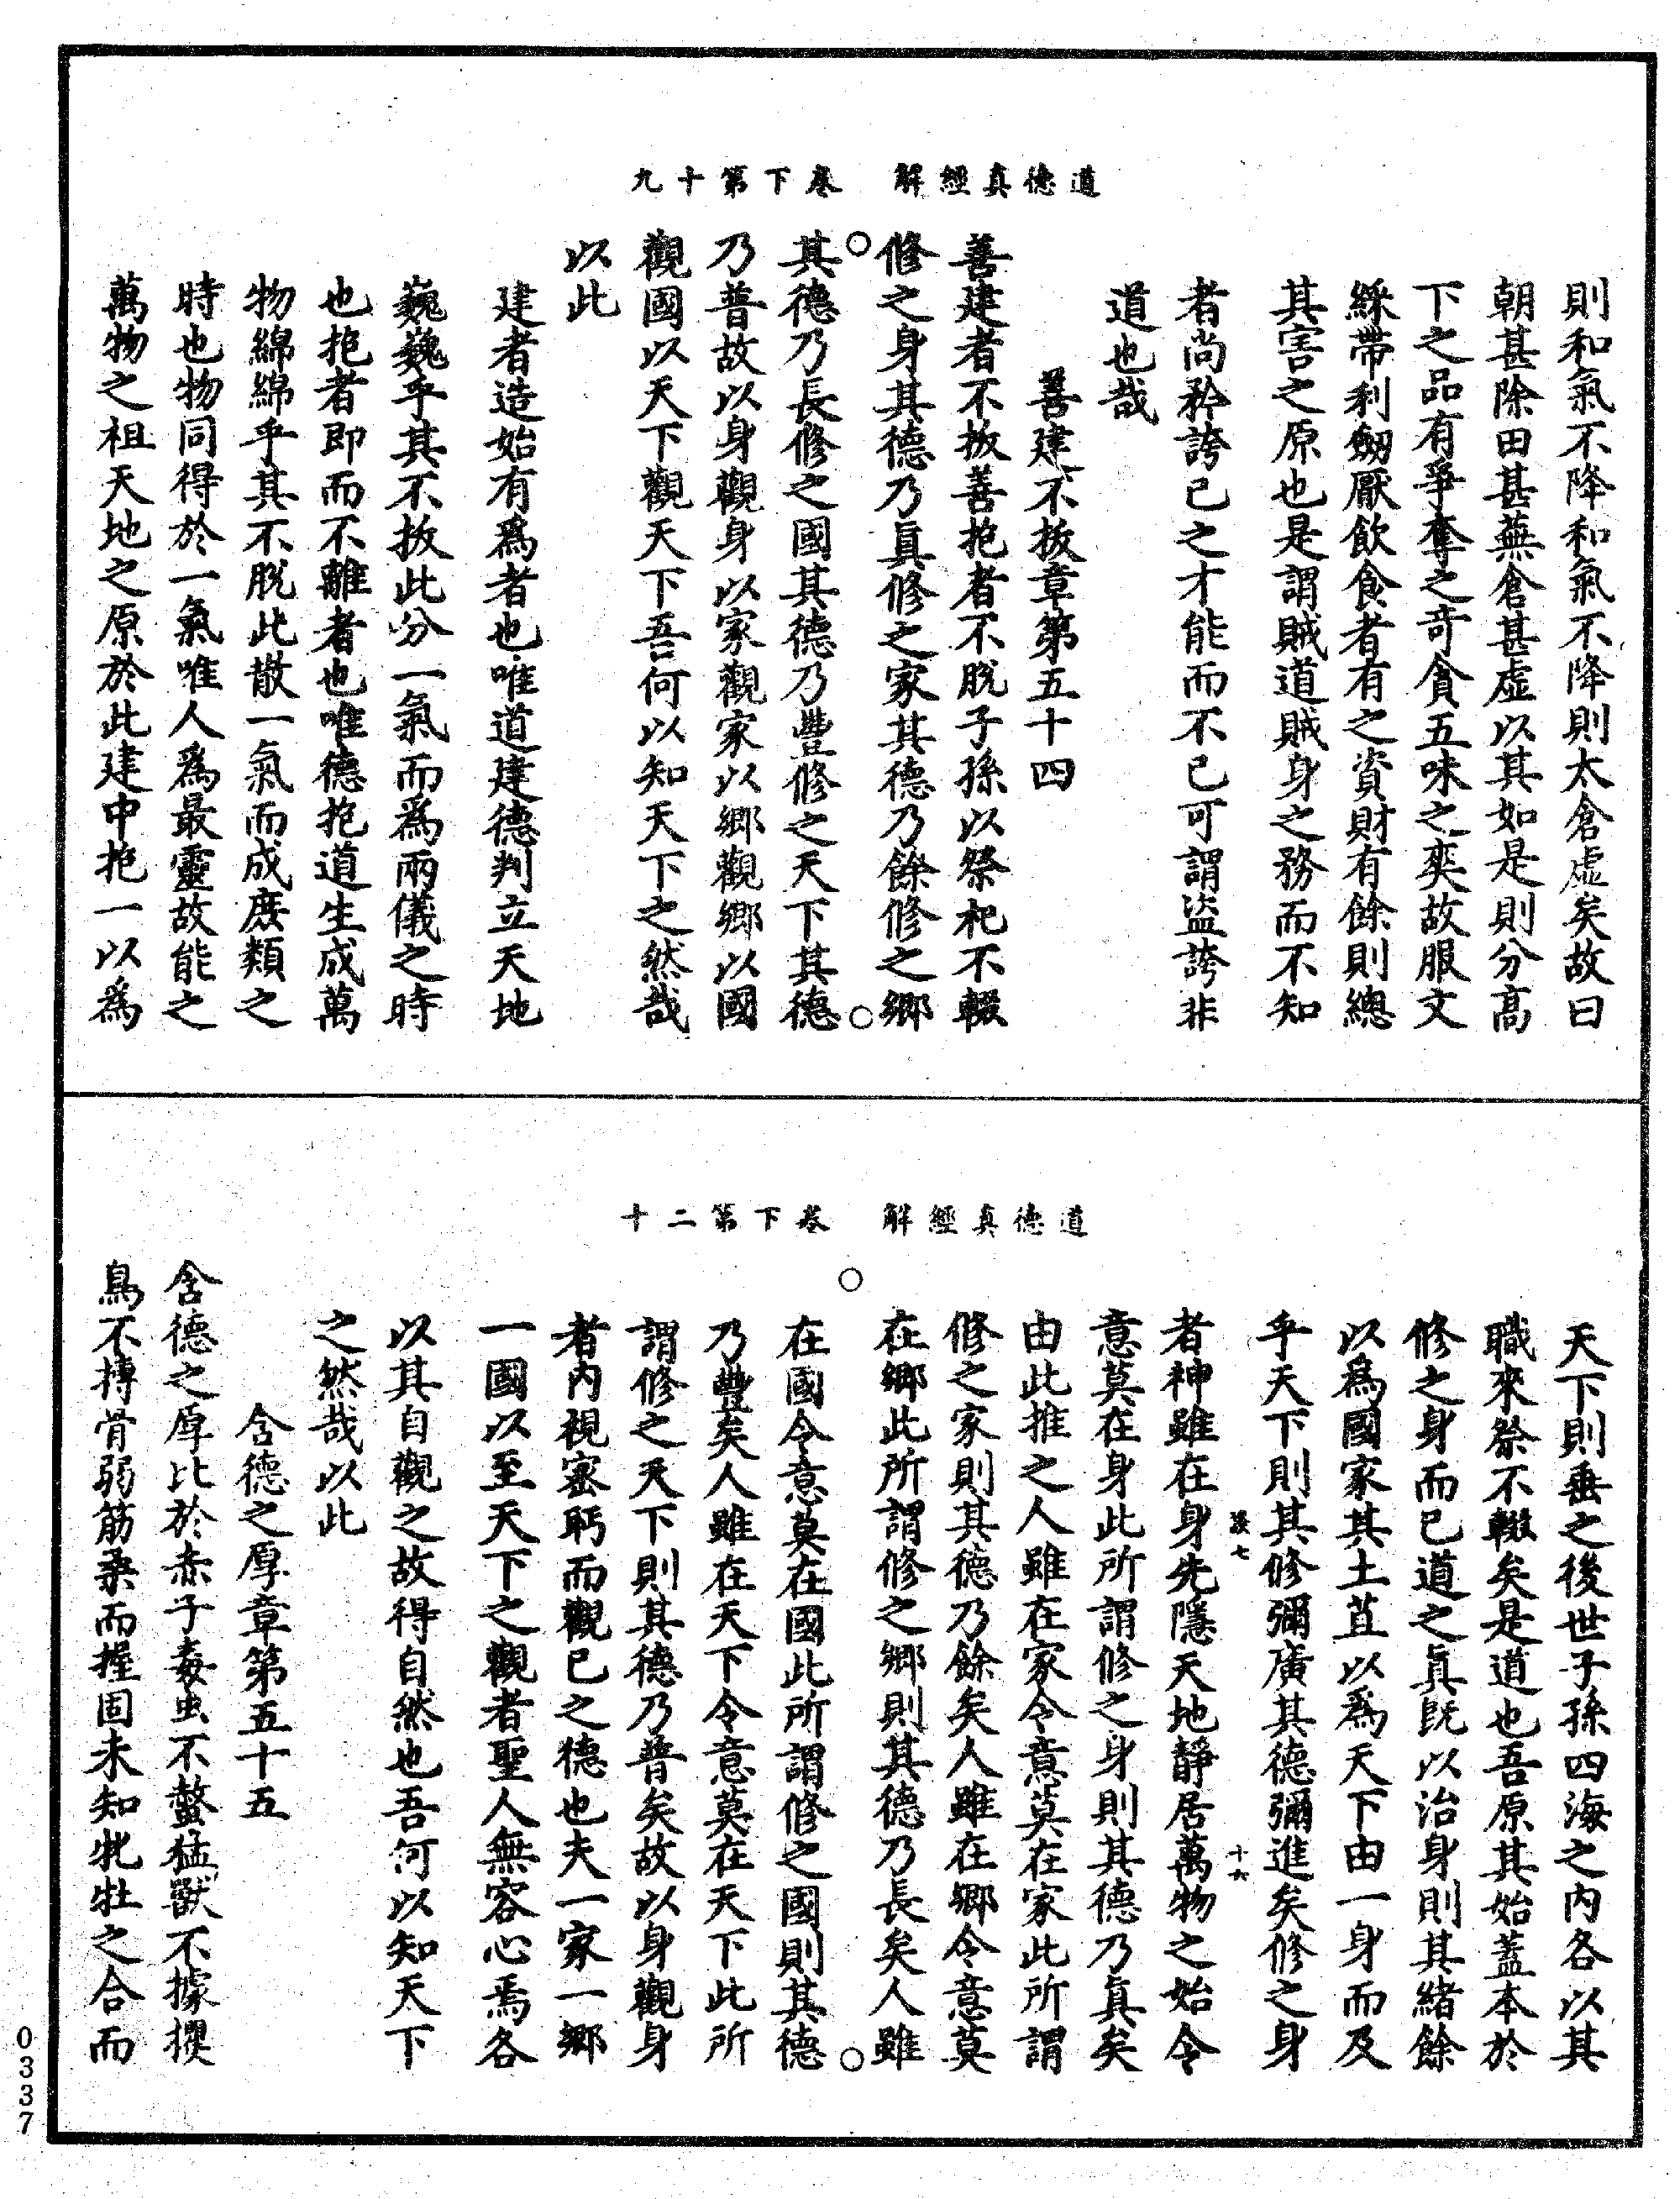 道德真經解 卷下第十九
則和氣不降和氣不降則太倉虛矣故曰
朝甚除田甚蕪倉甚虛以其如是則分高
下之品有爭奪之奇貪五味之爽故服文
綵帶利劒厭飲食者有之資財有餘則總
其害之原也是謂賊道賊身之務而不知
者尚矜誇已之才能而不已可謂盜誇非
道也哉
善建不拔章第五十四
善建者不拔善抱者不脫子孫以祭祀不輟
修之身其德乃眞修之家其德乃餘修之鄉
其德乃長修之國其德乃豐修之天下其德
乃普故以身觀身以家觀家以鄉觀鄉以國
觀國以天下觀天下吾何以知天下之然哉
以此
建者造始有爲者也唯道建德判立天地
巍巍乎其不拔此分一氣而爲兩儀之時
也抱者即而不離者也唯德抱道生成萬
物綿綿乎其不脫此散一氣而成庶類之
時也物同得於一氣唯人爲最靈故能之
萬物之祖天地之原於此建中抱一以爲
道德真經解 卷下第二十
天下則垂之後世子孫四海之內各以其
職來祭不輟矣是道也吾原其始蓋本於
修之身而已道之眞旣以治身則其緒餘
以爲國家其土苴以爲天下由一身而及
乎天下則其修彌廣其德彌進矣修之身
七 十六
者神雖在身先隱天地靜居萬物之始令
意莫在身此所謂修之身則其德乃眞矣
由此推之人雖在家令意莫在家此所謂
修之家則其德乃餘矣人雖在鄉令意莫
在鄉此所謂修之鄉則其德乃長矣人雖
在國令意莫在國此所謂修之國則其德
乃豐矣人雖在天下令意莫在天下此所
謂修之天下則其德乃普矣故以身觀身
者內視密眄而觀已之德也夫一家一鄉
一國以至天下之觀者聖人無容心焉各
以其自觀之故得自然也吾何以知天下
之然哉以此
含德之厚章第五十五
含德之厚比於赤子毒虫不螫猛獸不據攫
鳥不搏骨弱筋柔而握固未知牝牡之合而
0337